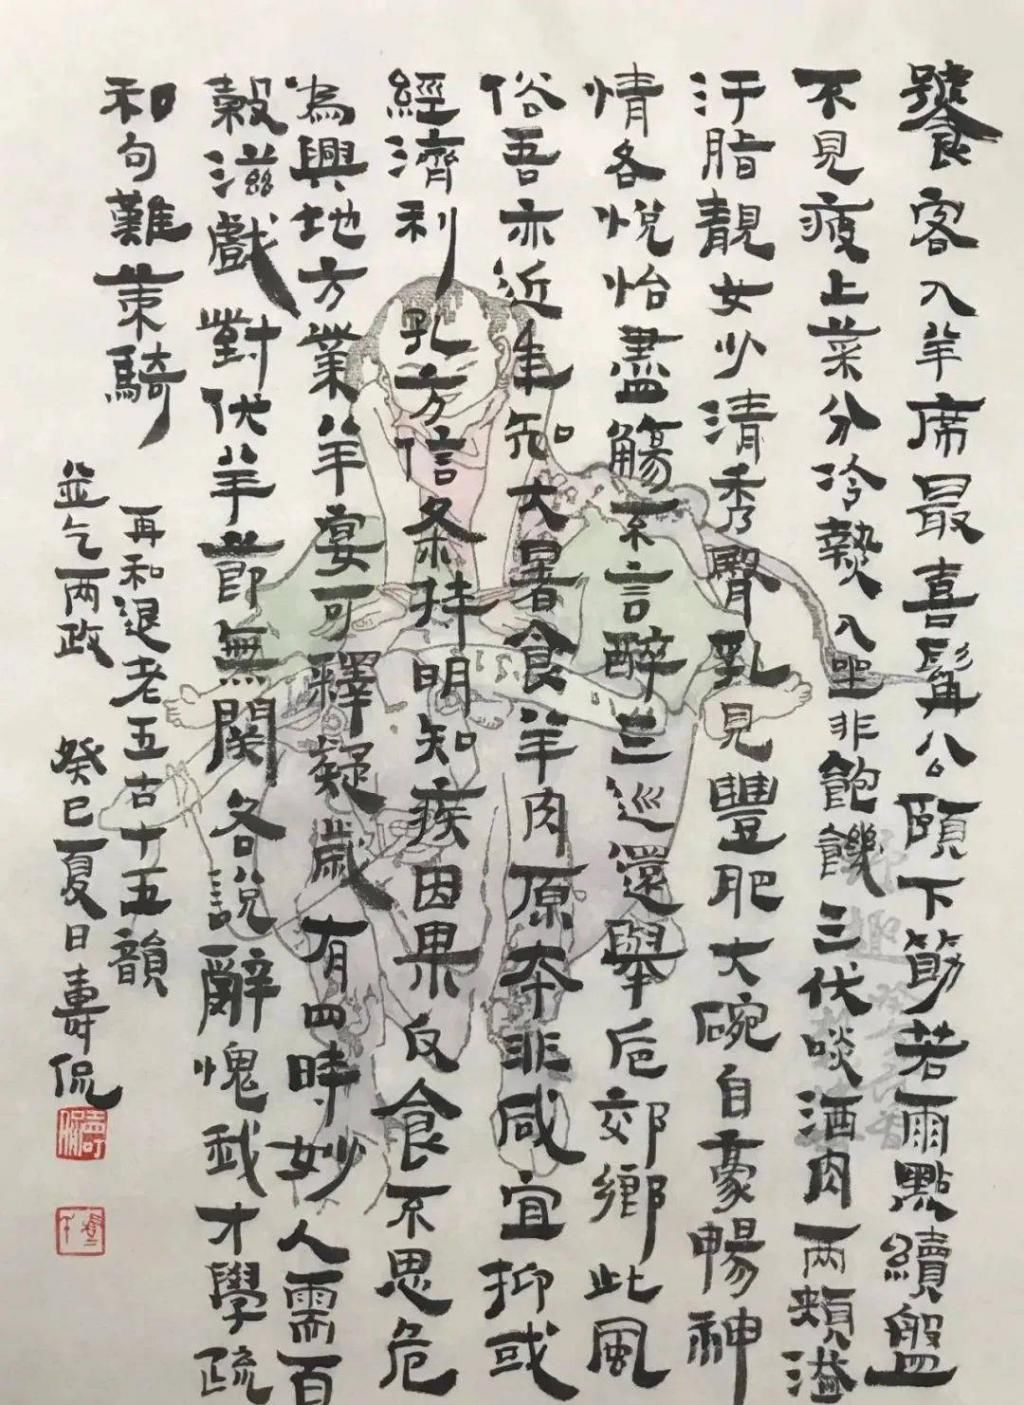 饕客入羊席最喜髯公頤下筯若雨點續盤
不見疲上菜分冷熱入坐非飽饑三伏啖酒肉兩頰溢
汙脂靚女少清秀臀乳見豐肥大碗自豪暢神
情各悅怡盡觴不言醉三巡還舉卮郊鄉此風
俗吾亦近年知大暑食羊肉原本非咸宜抑或
經濟利孔方信条持明知疾因果反食不思危
為興地方業羊宴可釋疑歲有四時妙人需百
穀滋戲對伏羊節無関各說辭愧我才學疏
和句難策騎
再和退老五古十五韻
並乞兩政 癸巳夏日壽侃